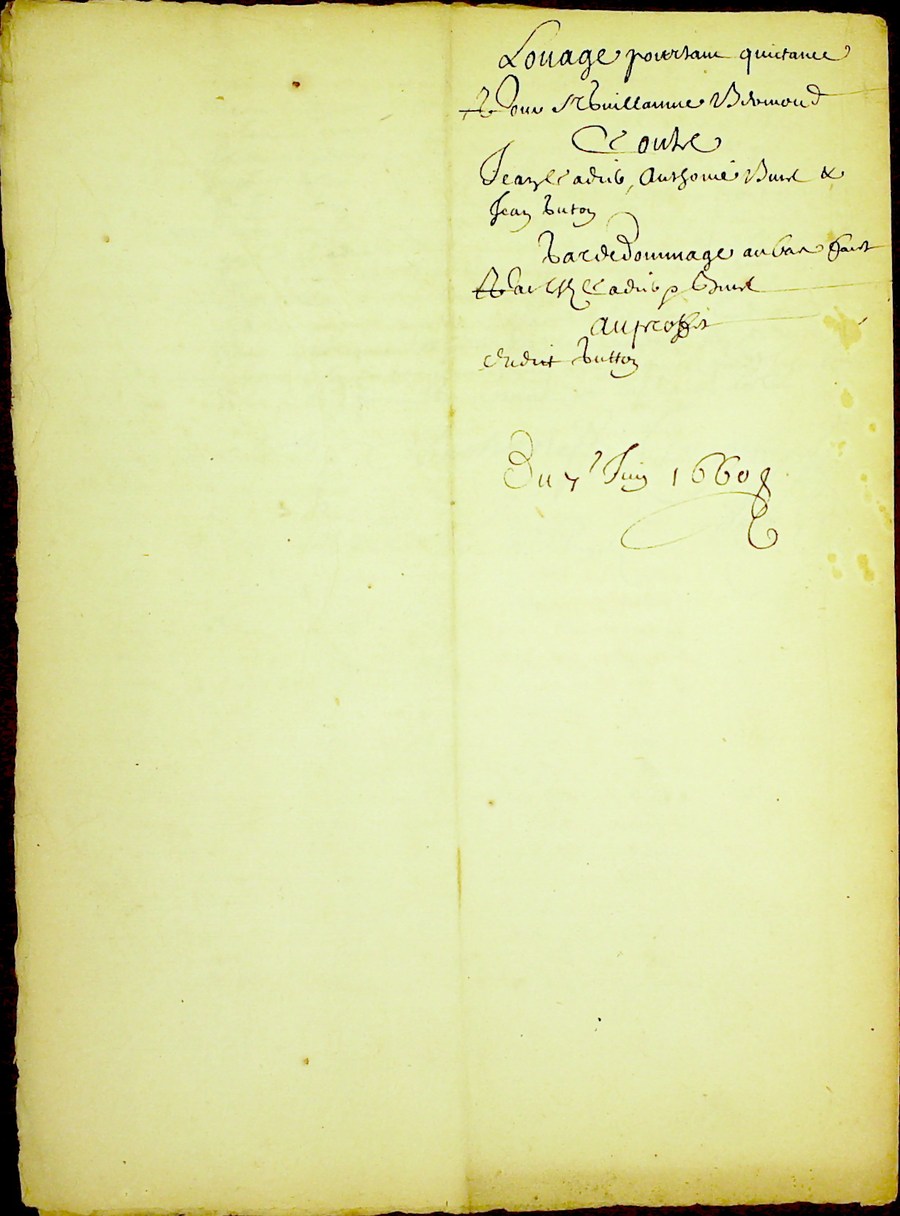 Louage portant quictance
Pour Sr Guillaume Bermond
Contre
Jean Cadris, Anthoine Burel &
Jean Buton
Gardedommage au bas faict
Par Cadris & Burel
au proffit
dudict Button
Du 7e Juin 1660